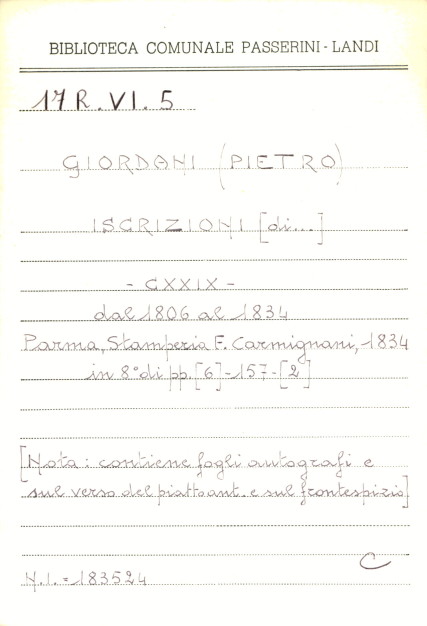 BIBLIOTECA COMUNALE PASSERINI - LANDI
17 R. VI. 5
GIORDANI (PIETRO)
ISCRIZIONI [di...]
- CXXIX -
dal 1806 al 1834
Parma, Stamperia F. Carmignani, 1834
in 8° di pp. [6]-157-[2]
[Nota: contiene fogli autografi e
sul verso del piatto ant. e sul frontespizio]
C
N.I. = 183524